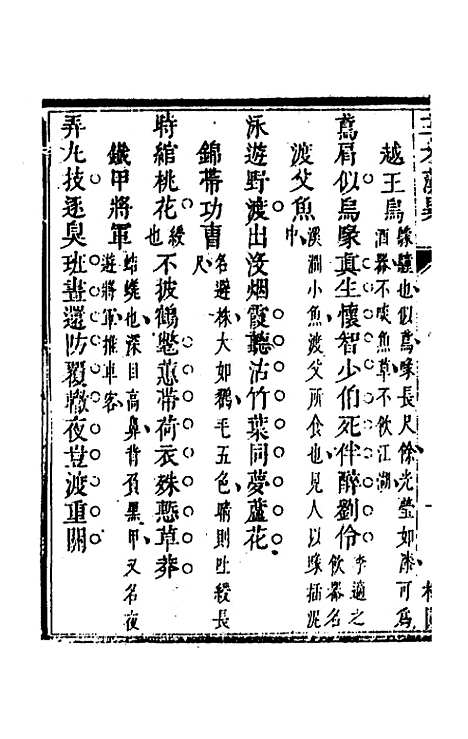 越王鳥
也似鳶喙長尺餘光瑩如漆可爲
酒器不啖魚草不飲江湖
鳶肩似鳥喙真生懷智少伯死伴醉劉伶李適之飲器名
渡父魚溪澗小魚渡父所食也見人以喙插泥中
泳遊野渡出没烟霞聽沽竹葉同夢蘆花
錦帶功曹名避株大如鸐毛五色晴則吐綬長尺
時綰桃花綬也不披鶴氅蕙帶荷衣殊慙草莽
鐵甲將軍蜣蜋也深目高鼻背負黑甲又名夜遊將軍推車客
弄九技逐臭班晝還防覆轍夜豈渡重關